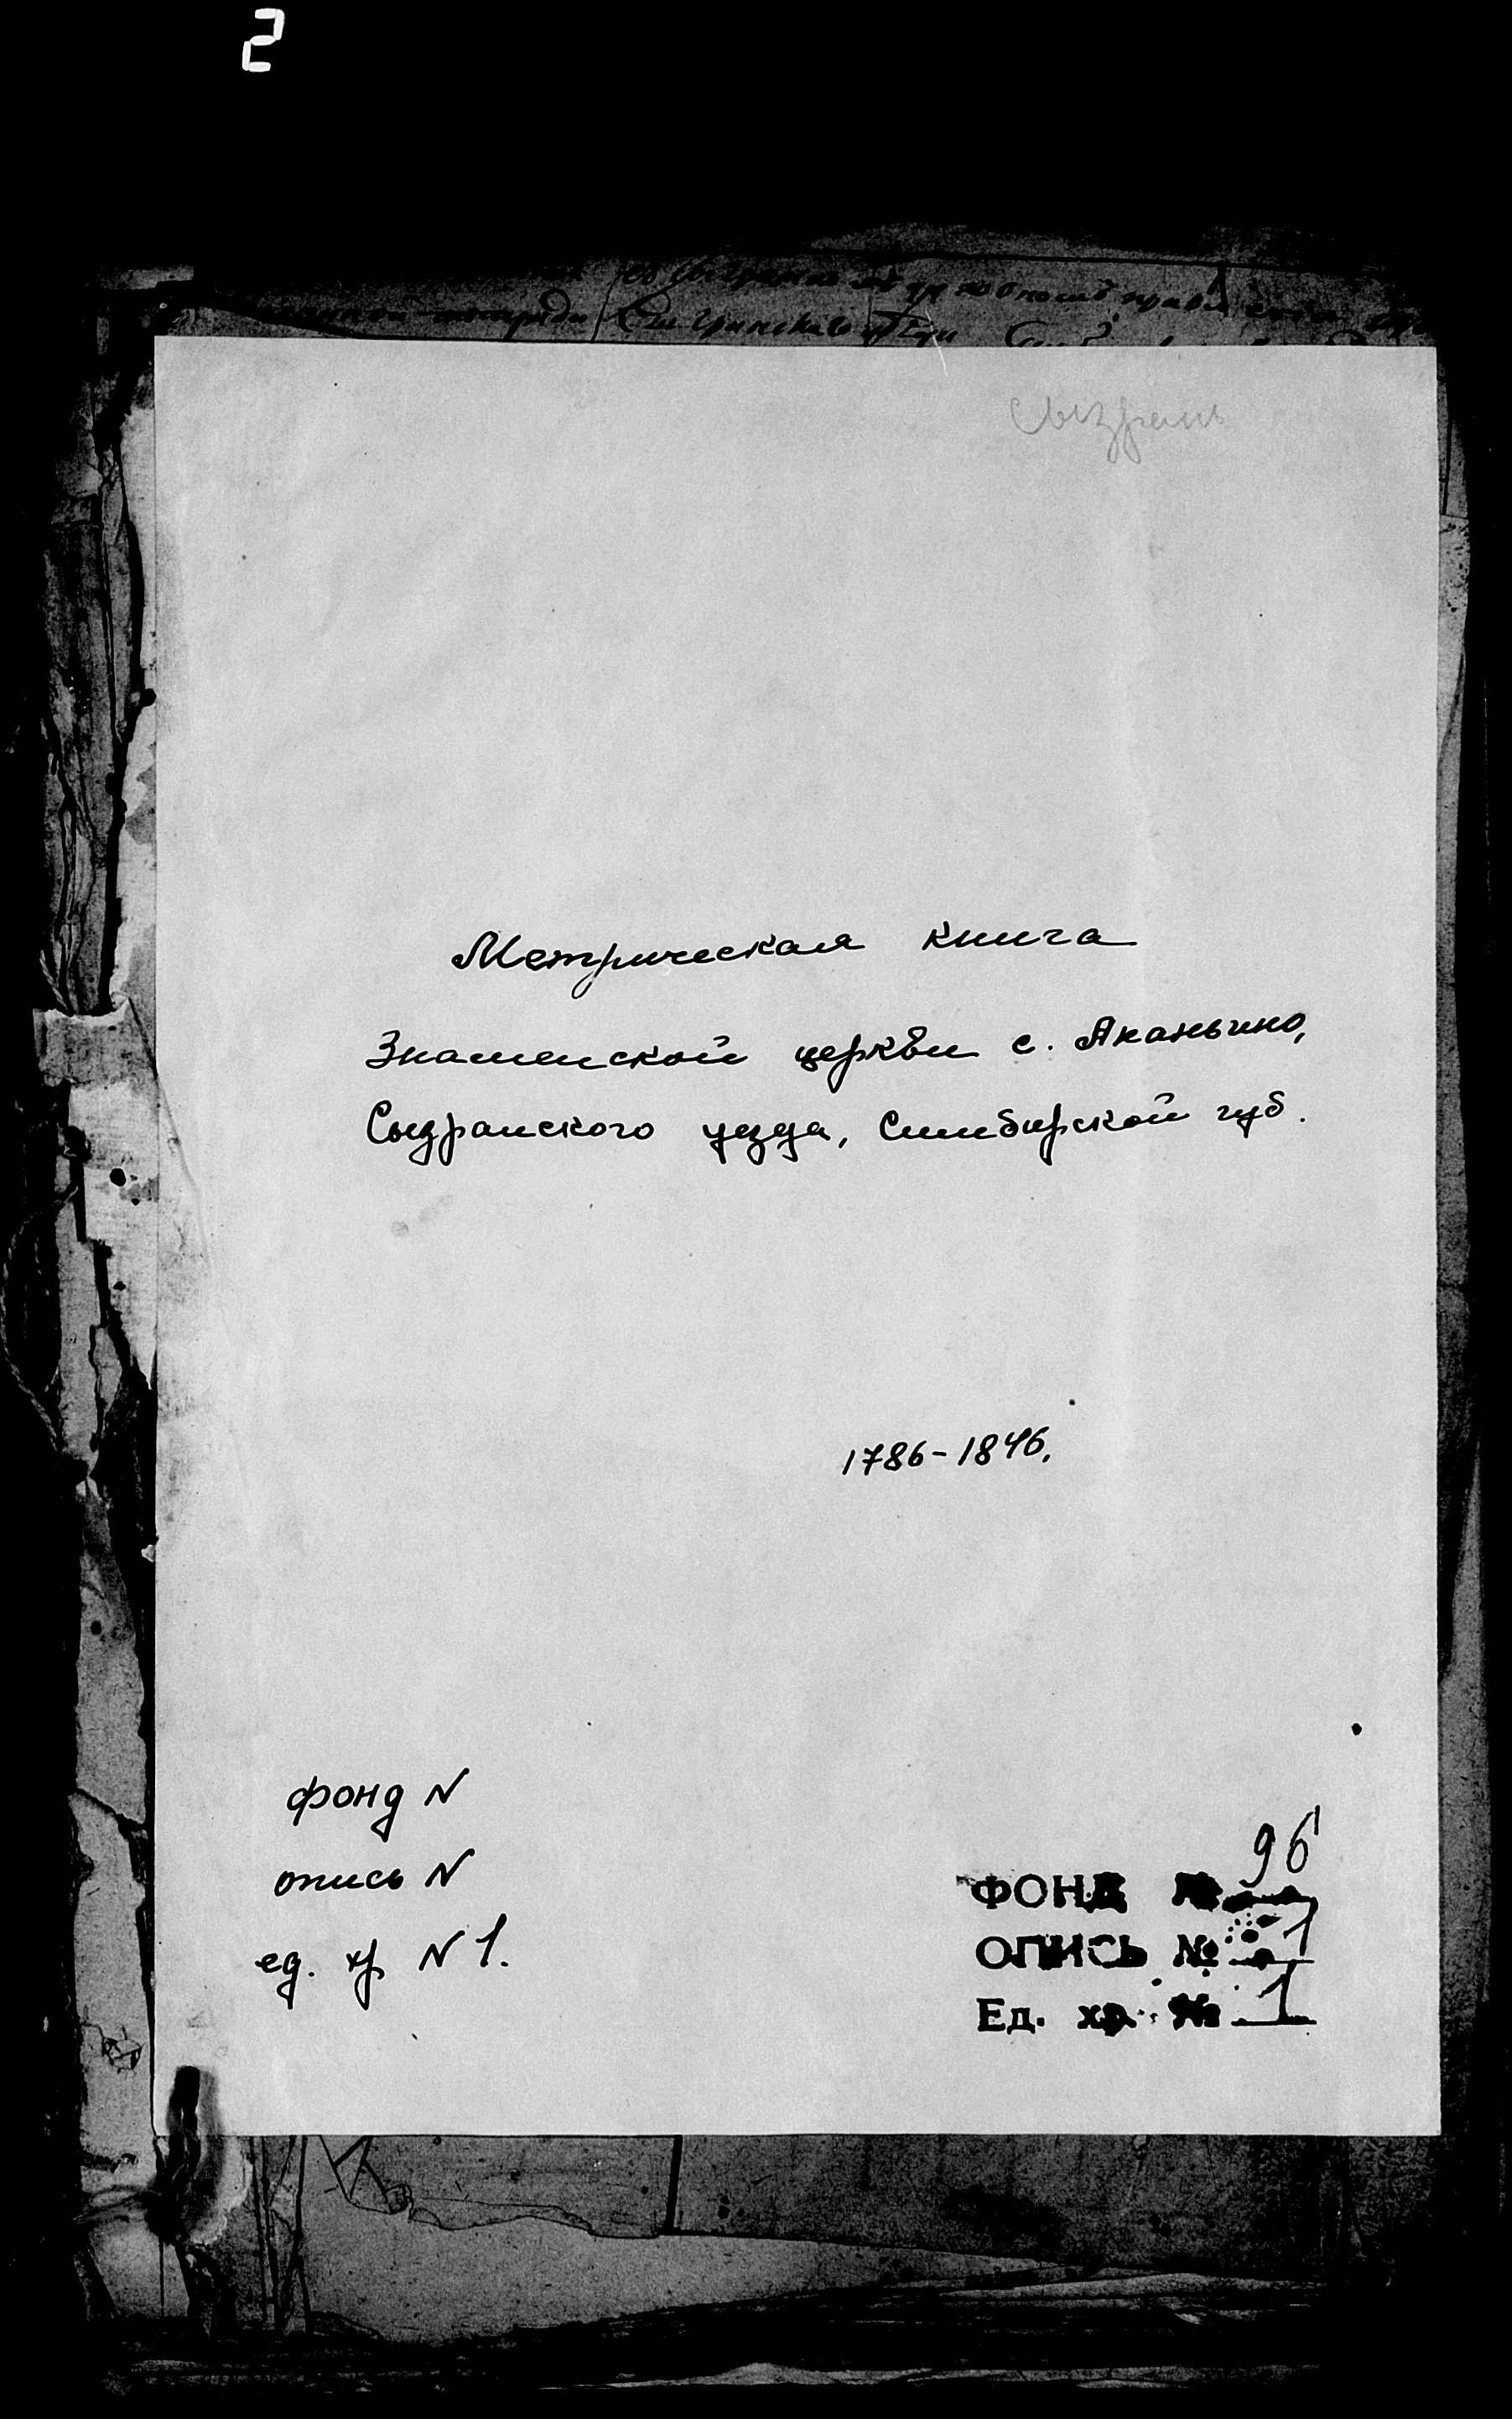 2
Сызрань
Метрическая книга
Знаменской церкви с. Аканьино,
Сызранского уезда, Симбирской губ.
1786-1846.
фонд N
опись N
ед. хр N 1.
ФОНД № 96
ОПИСЬ № 1
Ед. хр. № 1